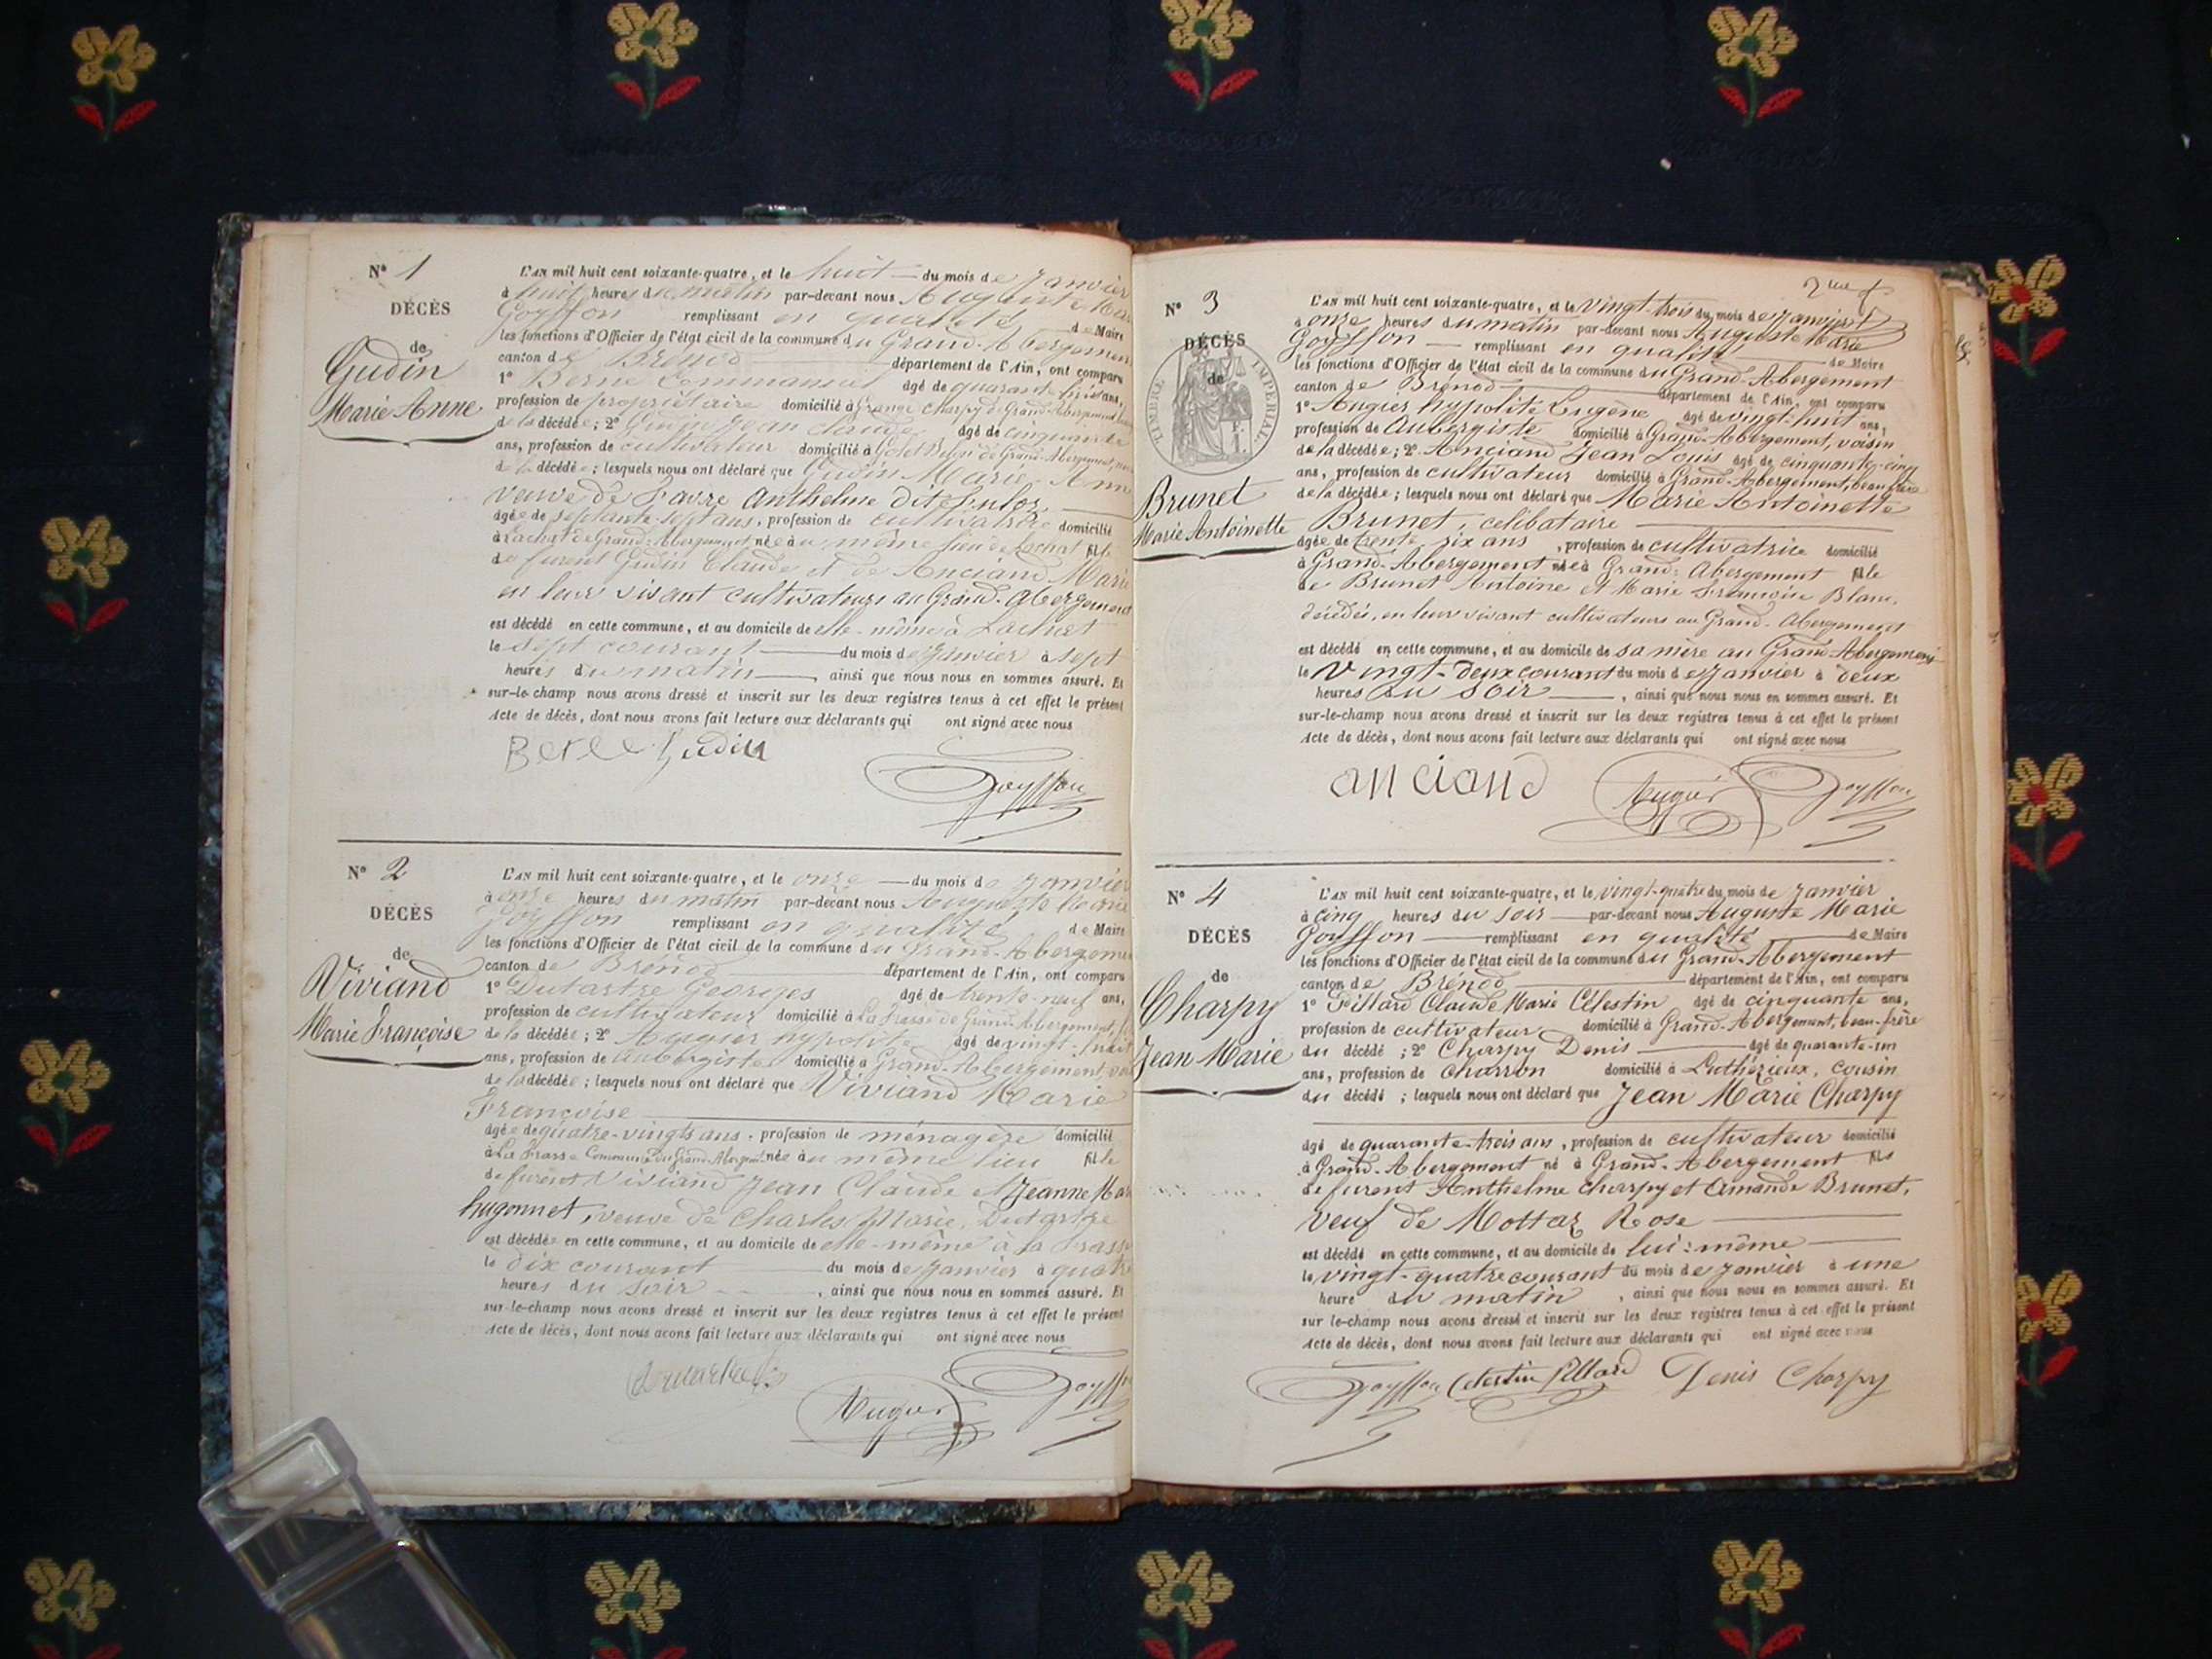 N° 1
DÉCÈS
de
Gudin
Marie Anne
L'AN mil huit cent soixante-quatre, et le huit du mois de Janvier
à huit heures du matin par-devant nous Auguste Marie
Goyffon remplissant en qualité de Maire
les fonctions d'Officier de l'état civil de la commune du Grand-Abergement
canton de Brénod département de l'Ain, ont comparu
1° âgé de quarante huit ans,
profession de propriétaire domicilié à Grange Charpy de Grand-Abergement
de la décédée; 2° Gudin Jean Claude âgé de cinquante
ans, profession de cultivateur domicilié à de Grand-Abergement,
de la décédée; lesquels nous ont déclaré que Gudin Marie Anne
veuve de Favre Anthelme dit
âgée de septante-sept ans, profession de cultivatrice domicilié
à Lachat de Grand-Abergement née au même lieu de Lachat fille
de furent Gudin Claude et de Anciand Marie
en leur vivant cultivateurs au Grand-Abergement
est décédé en cette commune, et au domicile de elle-même à Lachat
le sept courant du mois de Janvier à sept
heures du matin, ainsi que nous nous en sommes assuré. Et
sur-le-champ nous avons dressé et inscrit sur les deux registres tenus à cet effet le présent
Acte de décès, dont nous avons fait lecture aux déclarants qui ont signé avec nous
Gudin
Goyffon
N° 2
DÉCÈS
de
Viviand
Marie Françoise
L'AN mil huit cent soixante-quatre, et le onze du mois de Janvier
à onze heures du matin par-devant nous Auguste Marie
Goyffon remplissant en qualité de Maire
les fonctions d'Officier de l'état civil de la commune du Grand-Abergement
canton de Brénod département de l'Ain, ont comparu
1° Dutartre Georges âgé de trente-neuf ans,
profession de cultivateur domicilié à La Frasse de Grand-Abergement,
de la décédée; 2° Augier hypolite âgé de vingt-huit
ans, profession de Aubergiste domicilié à Grand-Abergement,
de la décédée; lesquels nous ont déclaré que Viviand Marie
Françoise
âgée de quatre-vingts ans, profession de ménagère domicilié
à La Frasse Commune du Grand-Abergement née au même lieu fille
de furent Viviand Jean Claude et Jeanne Marie
hugonnet, veuve de Charles Marie Dutartre
est décédée en cette commune, et au domicile de elle-même à la Frasse
le dix courant du mois de Janvier à quatre
heures du soir, ainsi que nous nous en sommes assuré. Et
sur-le-champ nous avons dressé et inscrit sur les deux registres tenus à cet effet le présent
Acte de décès, dont nous avons fait lecture aux déclarants qui ont signé avec nous
Augier
Goyffon
N° 3
DÉCÈS
de
TIMBRE IMPÉRIAL
Brunet
Marie Antoinette
L'AN mil huit cent soixante-quatre, et le vingt-trois du mois de Janvier
à onze heures du matin par-devant nous Auguste Marie
Goyffon remplissant en qualité de Maire
les fonctions d'Officier de l'état civil de la commune du Grand-Abergement
canton de Brénod département de l'Ain, ont comparu
1° Augier hypolite Eugène âgé de vingt-huit ans,
profession de Aubergiste domicilié à Grand-Abergement, voisin
de la décédée; 2° Anciand Jean Louis âgé de cinquante-cinq
ans, profession de cultivateur domicilié à Grand-Abergement, beau frère
de la décédée; lesquels nous ont déclaré que Marie Antoinette
Brunet, célibataire
âgée de trente-six ans, profession de cultivatrice domicilié
à Grand-Abergement née à Grand-Abergement fille
de Brunet Antoine et Marie Françoise Blanc,
décédés, en leur vivant cultivateurs au Grand-Abergement
est décédé en cette commune, et au domicile de sa mère au Grand-Abergement
le vingt-deux courant du mois de Janvier à deux
heures du soir, ainsi que nous nous en sommes assuré. Et
sur-le-champ nous avons dressé et inscrit sur les deux registres tenus à cet effet le présent
Acte de décès, dont nous avons fait lecture aux déclarants qui ont signé avec nous
anciand Augier Goyffon
N° 4
DÉCÈS
de
Charpy
Jean Marie
L'AN mil huit cent soixante-quatre, et le vingt-quatre du mois de Janvier
à cinq heures du soir par-devant nous Auguste Marie
Goyffon remplissant en qualité de Maire
les fonctions d'Officier de l'état civil de la commune du Grand-Abergement
canton de Brénod département de l'Ain, ont comparu
1° Pillard Claude Marie Célestin âgé de cinquante ans,
profession de cultivateur domicilié à Grand-Abergement, beau-frère
du décédé; 2° Charpy Denis âgé de quarante-un
ans, profession de Charron domicilié à Luthézieux, cousin
du décédé; lesquels nous ont déclaré que Jean Marie Charpy
âgé de quarante-trois ans, profession de cultivateur domicilié
à Grand-Abergement né à Grand-Abergement fils
de furent Anthelme Charpy et Amande Brunet,
veuf de Mottaz Rose
est décédé en cette commune, et au domicile de lui-même
le vingt-quatre courant du mois de Janvier à une
heure du matin, ainsi que nous nous en sommes assuré. Et
sur le-champ nous avons dressé et inscrit sur les deux registres tenus à cet effet le présent
Acte de décès, dont nous avons fait lecture aux déclarants qui ont signé avec nous
Goyffon Célestin Pillard Denis Charpy